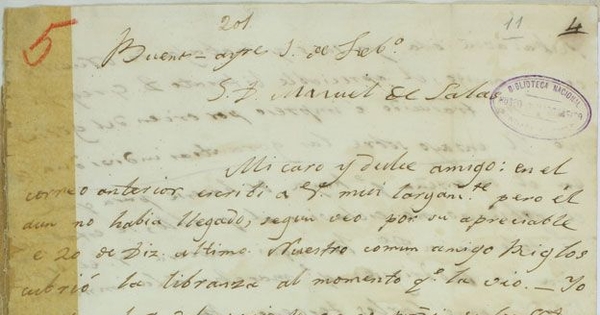 5
201
11
4
Buenˢ-ayrᵉ 1. de Febᵒ.
S. D. Manuel de Salas
BIBLIOTECA NACIONAL
Mi caro y dulce amigo: en el
correo anterior escribi a Vᵈ. mui largamᵗᵉ. pero él
aun no habia llegado, segun veo por su apreciable
e 20 de Diz. ultimo. Nuestro comun amigo Riglos
cubrió la libranza al momento qᵉ la vio. _ Yo